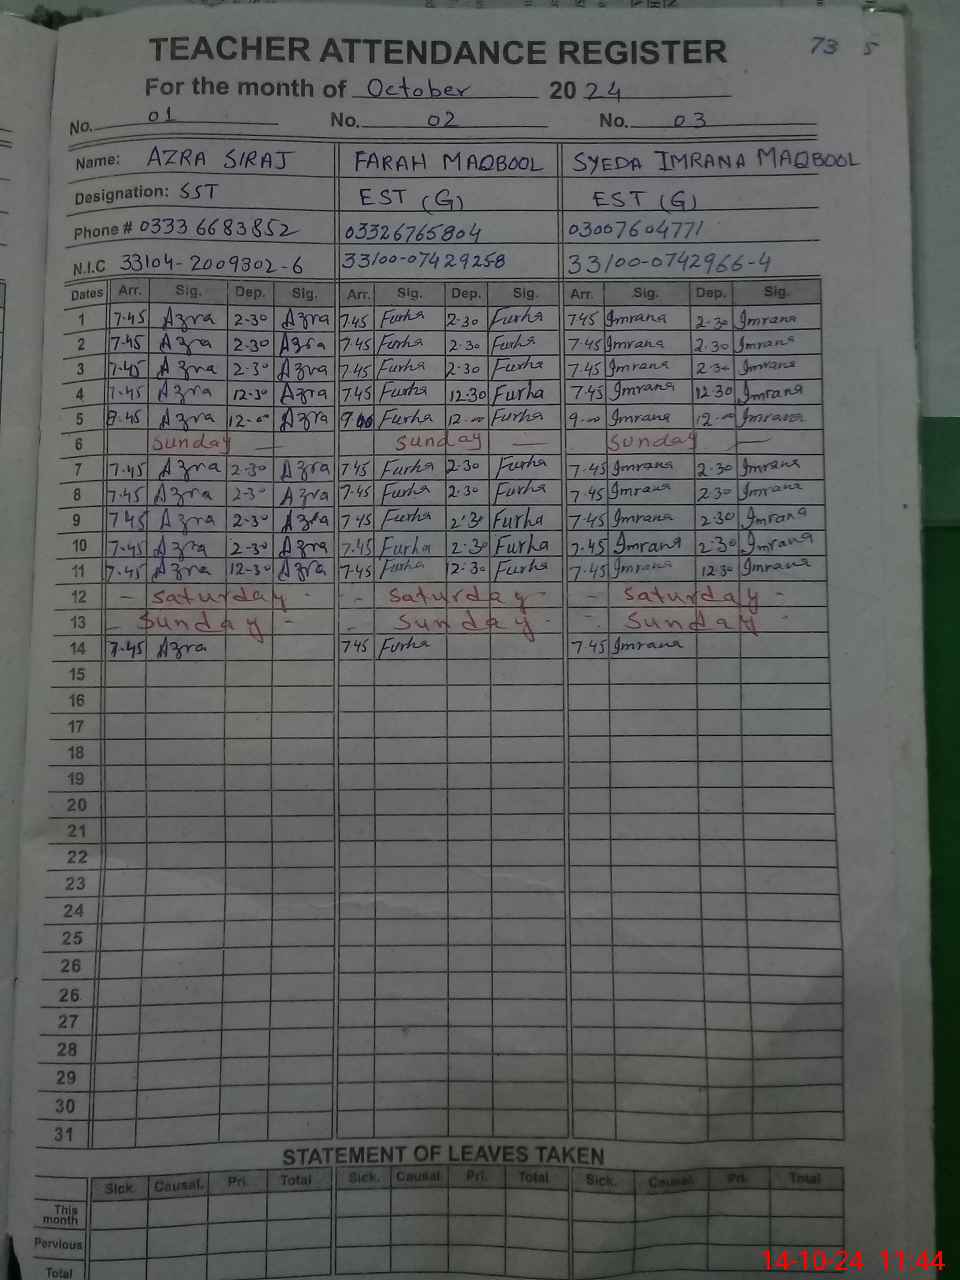 TEACHER ATTENDANCE REGISTER 73 5
For the month of October 2024
No. 01 No. 02 No. 03
Name: AZRA SIRAJ FARAH MAQBOOL SYEDA IMRANA MAQBOOL
Designation: SST EST (G) EST (G)
Phone # 0333 6683852 03326765804 03007604771
N.I.C 33104-2009302-6 33100-07429258 33100-0742966-4
Dates Arr. Sig. Dep. Sig. Arr. Sig. Dep. Sig. Arr. Sig. Dep. Sig.
1 7-45 Azra 2-30 Azra 7.45 Furha 2.30 Furha 7.45 Imrana 2.30 Imrana
2 7-45 Azra 2-30 Azra 7.45 Furha 2.30 Furha 7.45 Imrana 2.30 Imrana
3 7-45 Azra 2-30 Azra 7.45 Furha 2.30 Furha 7.45 Imrana 2.30 Imrana
4 7-45 Azra 12-30 Azra 7.45 Furha 12.30 Furha 7.45 Imrana 12.30 Imrana
5 8-45 Azra 12-00 Azra 9 00 Furha 12-00 Furha 9-00 Imrana 12-00 Imrana
6 Sunday Sunday Sunday
7 7-45 Azra 2-30 Azra 7.45 Furha 2.30 Furha 7.45 Imrana 2.30 Imrana
8 7-45 Azra 2-30 Azra 7.45 Furha 2.30 Furha 7.45 Imrana 2.30 Imrana
9 7-45 Azra 2-30 Azra 7.45 Furha 2.30 Furha 7.45 Imrana 2.30 Imrana
10 7-45 Azra 2-30 Azra 7.45 Furha 2.30 Furha 7.45 Imrana 2.30 Imrana
11 7-45 Azra 12-30 Azra 7.45 Furha 12.30 Furha 7.45 Imrana 12.30 Imrana
12 - Saturday - - Saturday - - Saturday -
13 - Sunday - - Sunday - - Sunday -
14 7-45 Azra 7.45 Furha 7.45 Imrana
15
16
17
18
19
20
21
22
23
24
25
26
26
27
28
29
30
31
STATEMENT OF LEAVES TAKEN
Sick. Causal. Pri. Total Sick. Causal Pri. Total Sick. Causal Pri. Total
This month
Pervious
Total
14-10-24 11:44